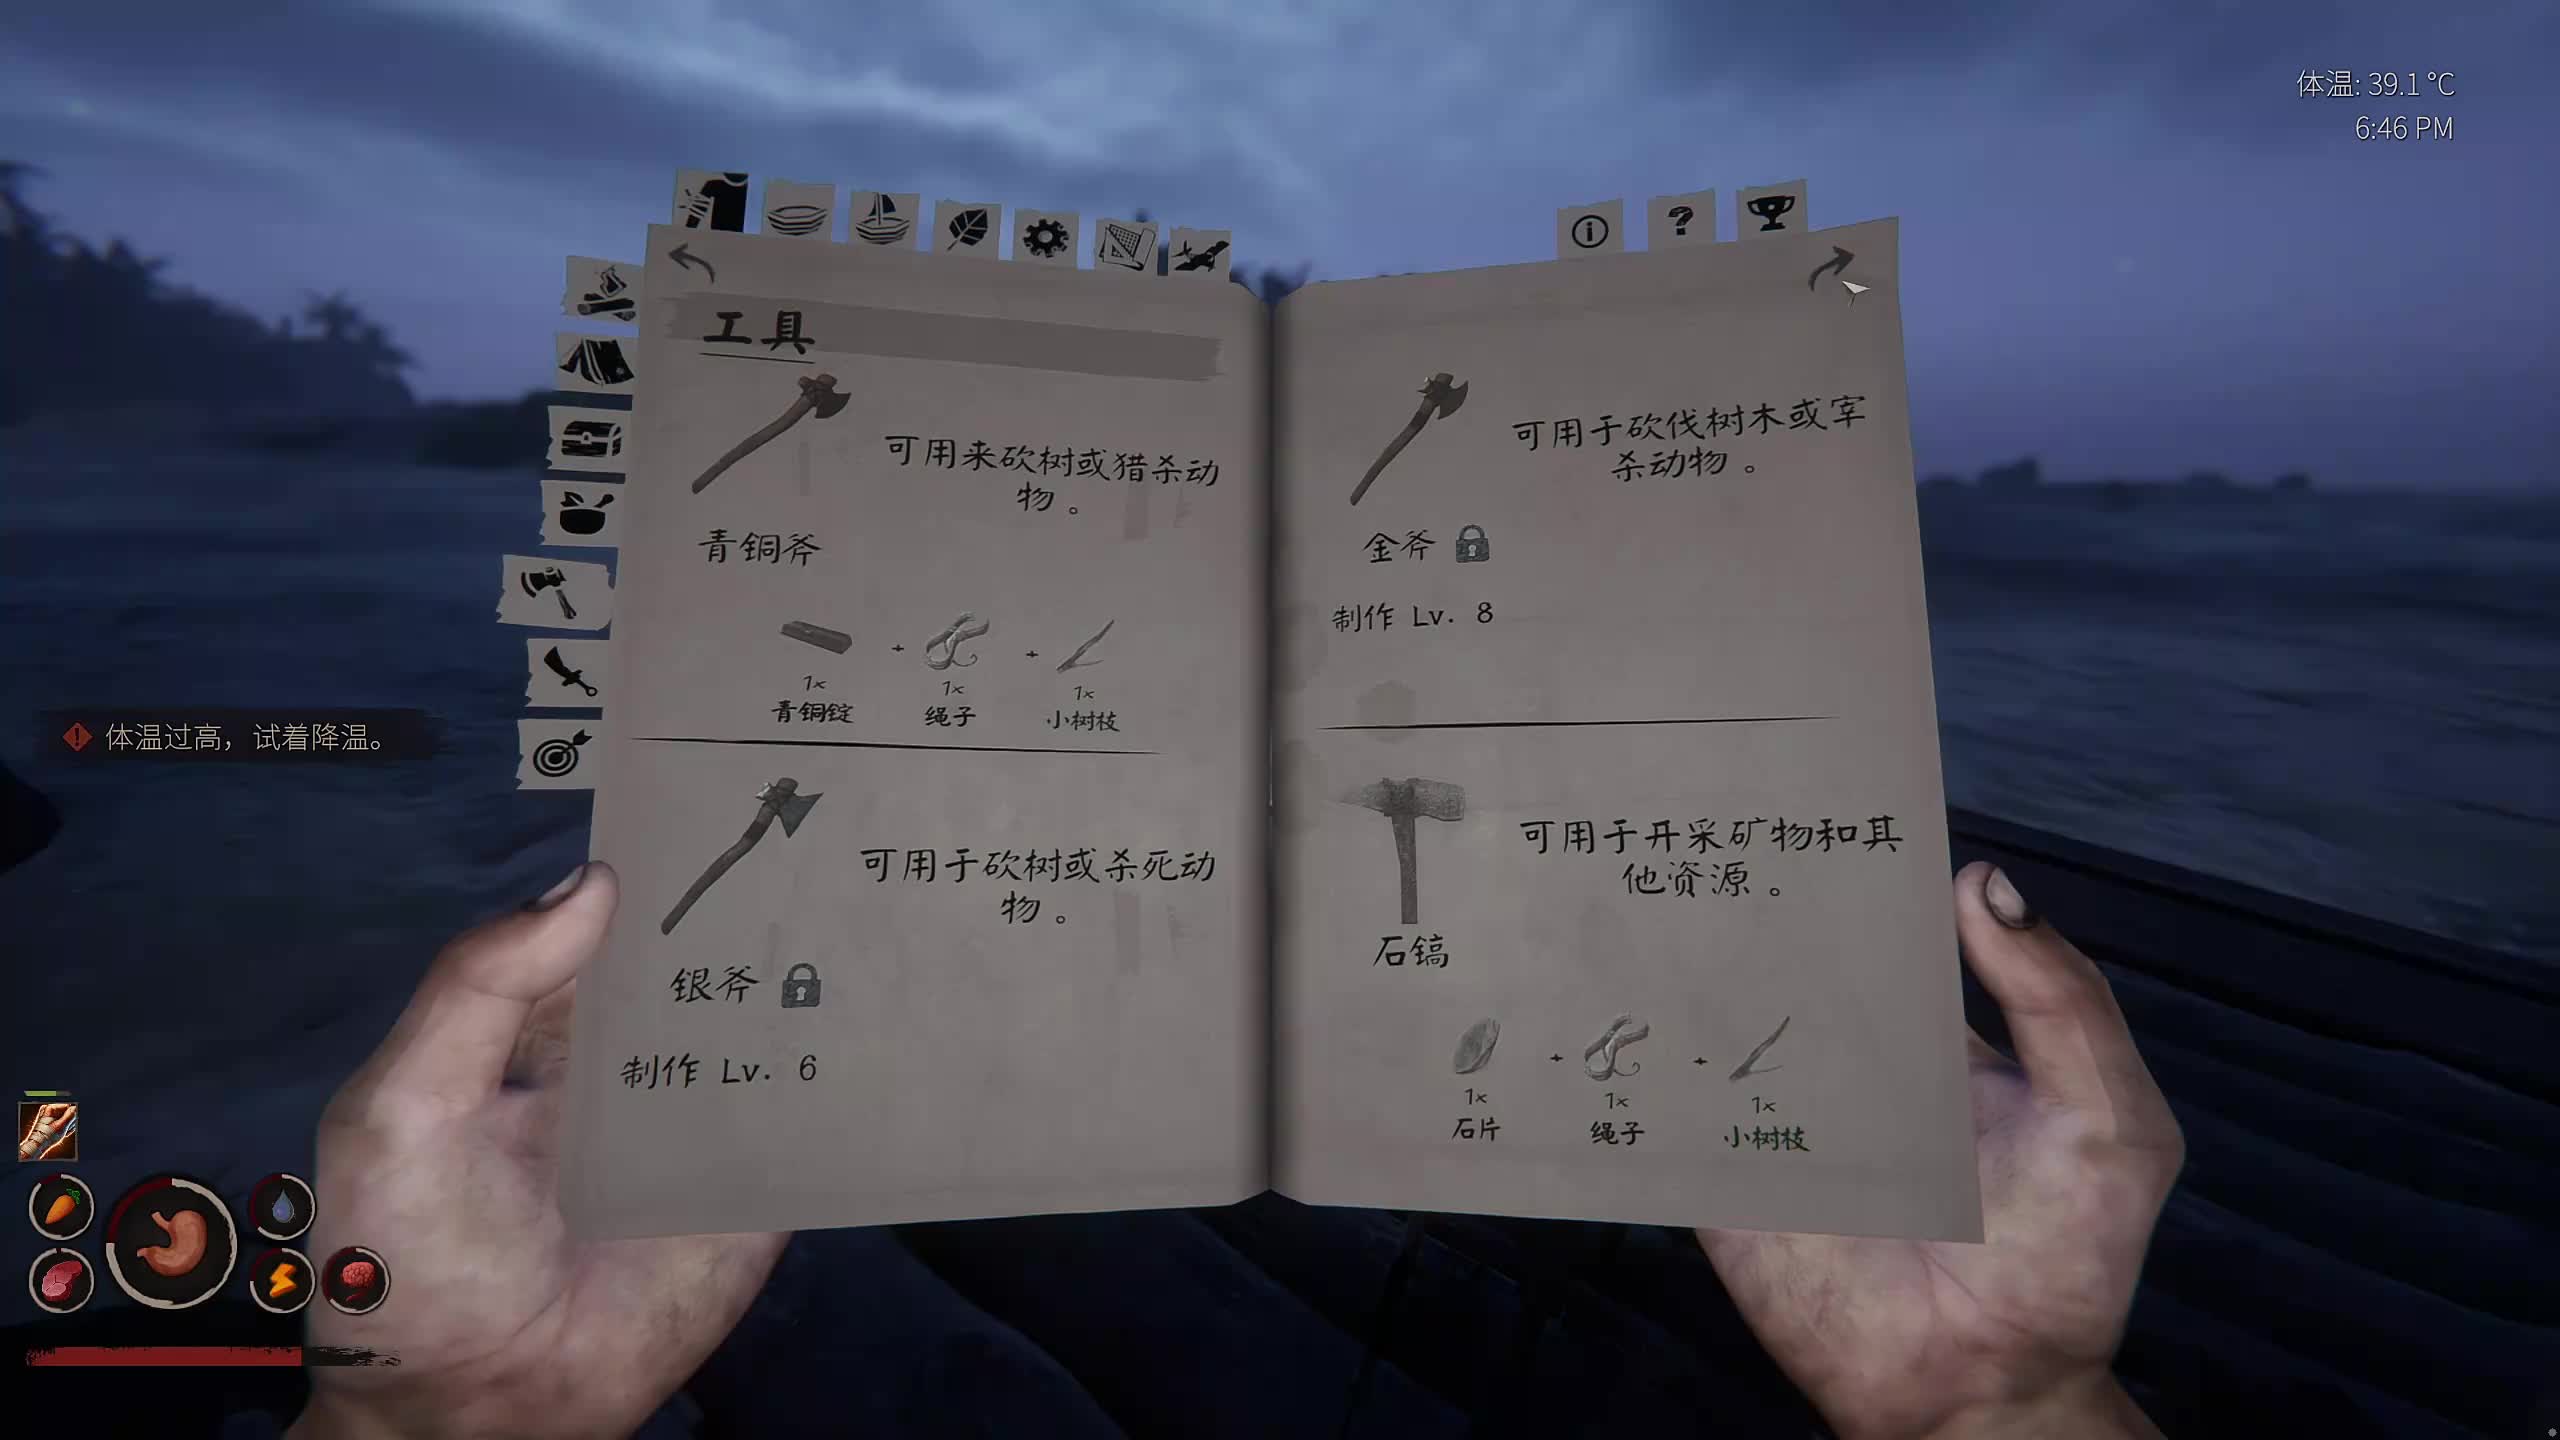 体温: 39.1 °C
6:46 PM
工具
可用来砍树或猎杀动
物。
青铜斧
1x
青铜锭
+
1x
绳子
+
1x
小树枝
可用于砍树或杀死动
物。
银斧
制作 Lv. 6
可用于砍伐树木或宰
杀动物。
金斧
制作 Lv. 8
可用于开采矿物和其
他资源。
石镐
1x
石片
+
1x
绳子
+
1x
小树枝
体温过高，试着降温。